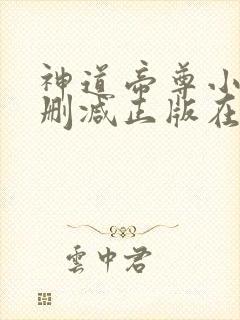 神道帝尊小
删减正版在
雲中君